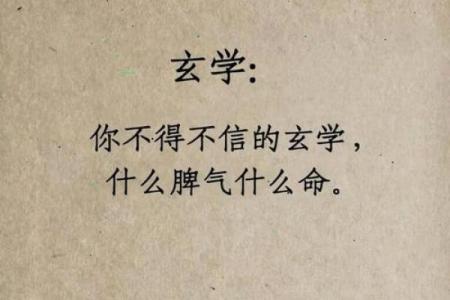 玄学:
你不得不信的玄学,
什么脾气什么命。